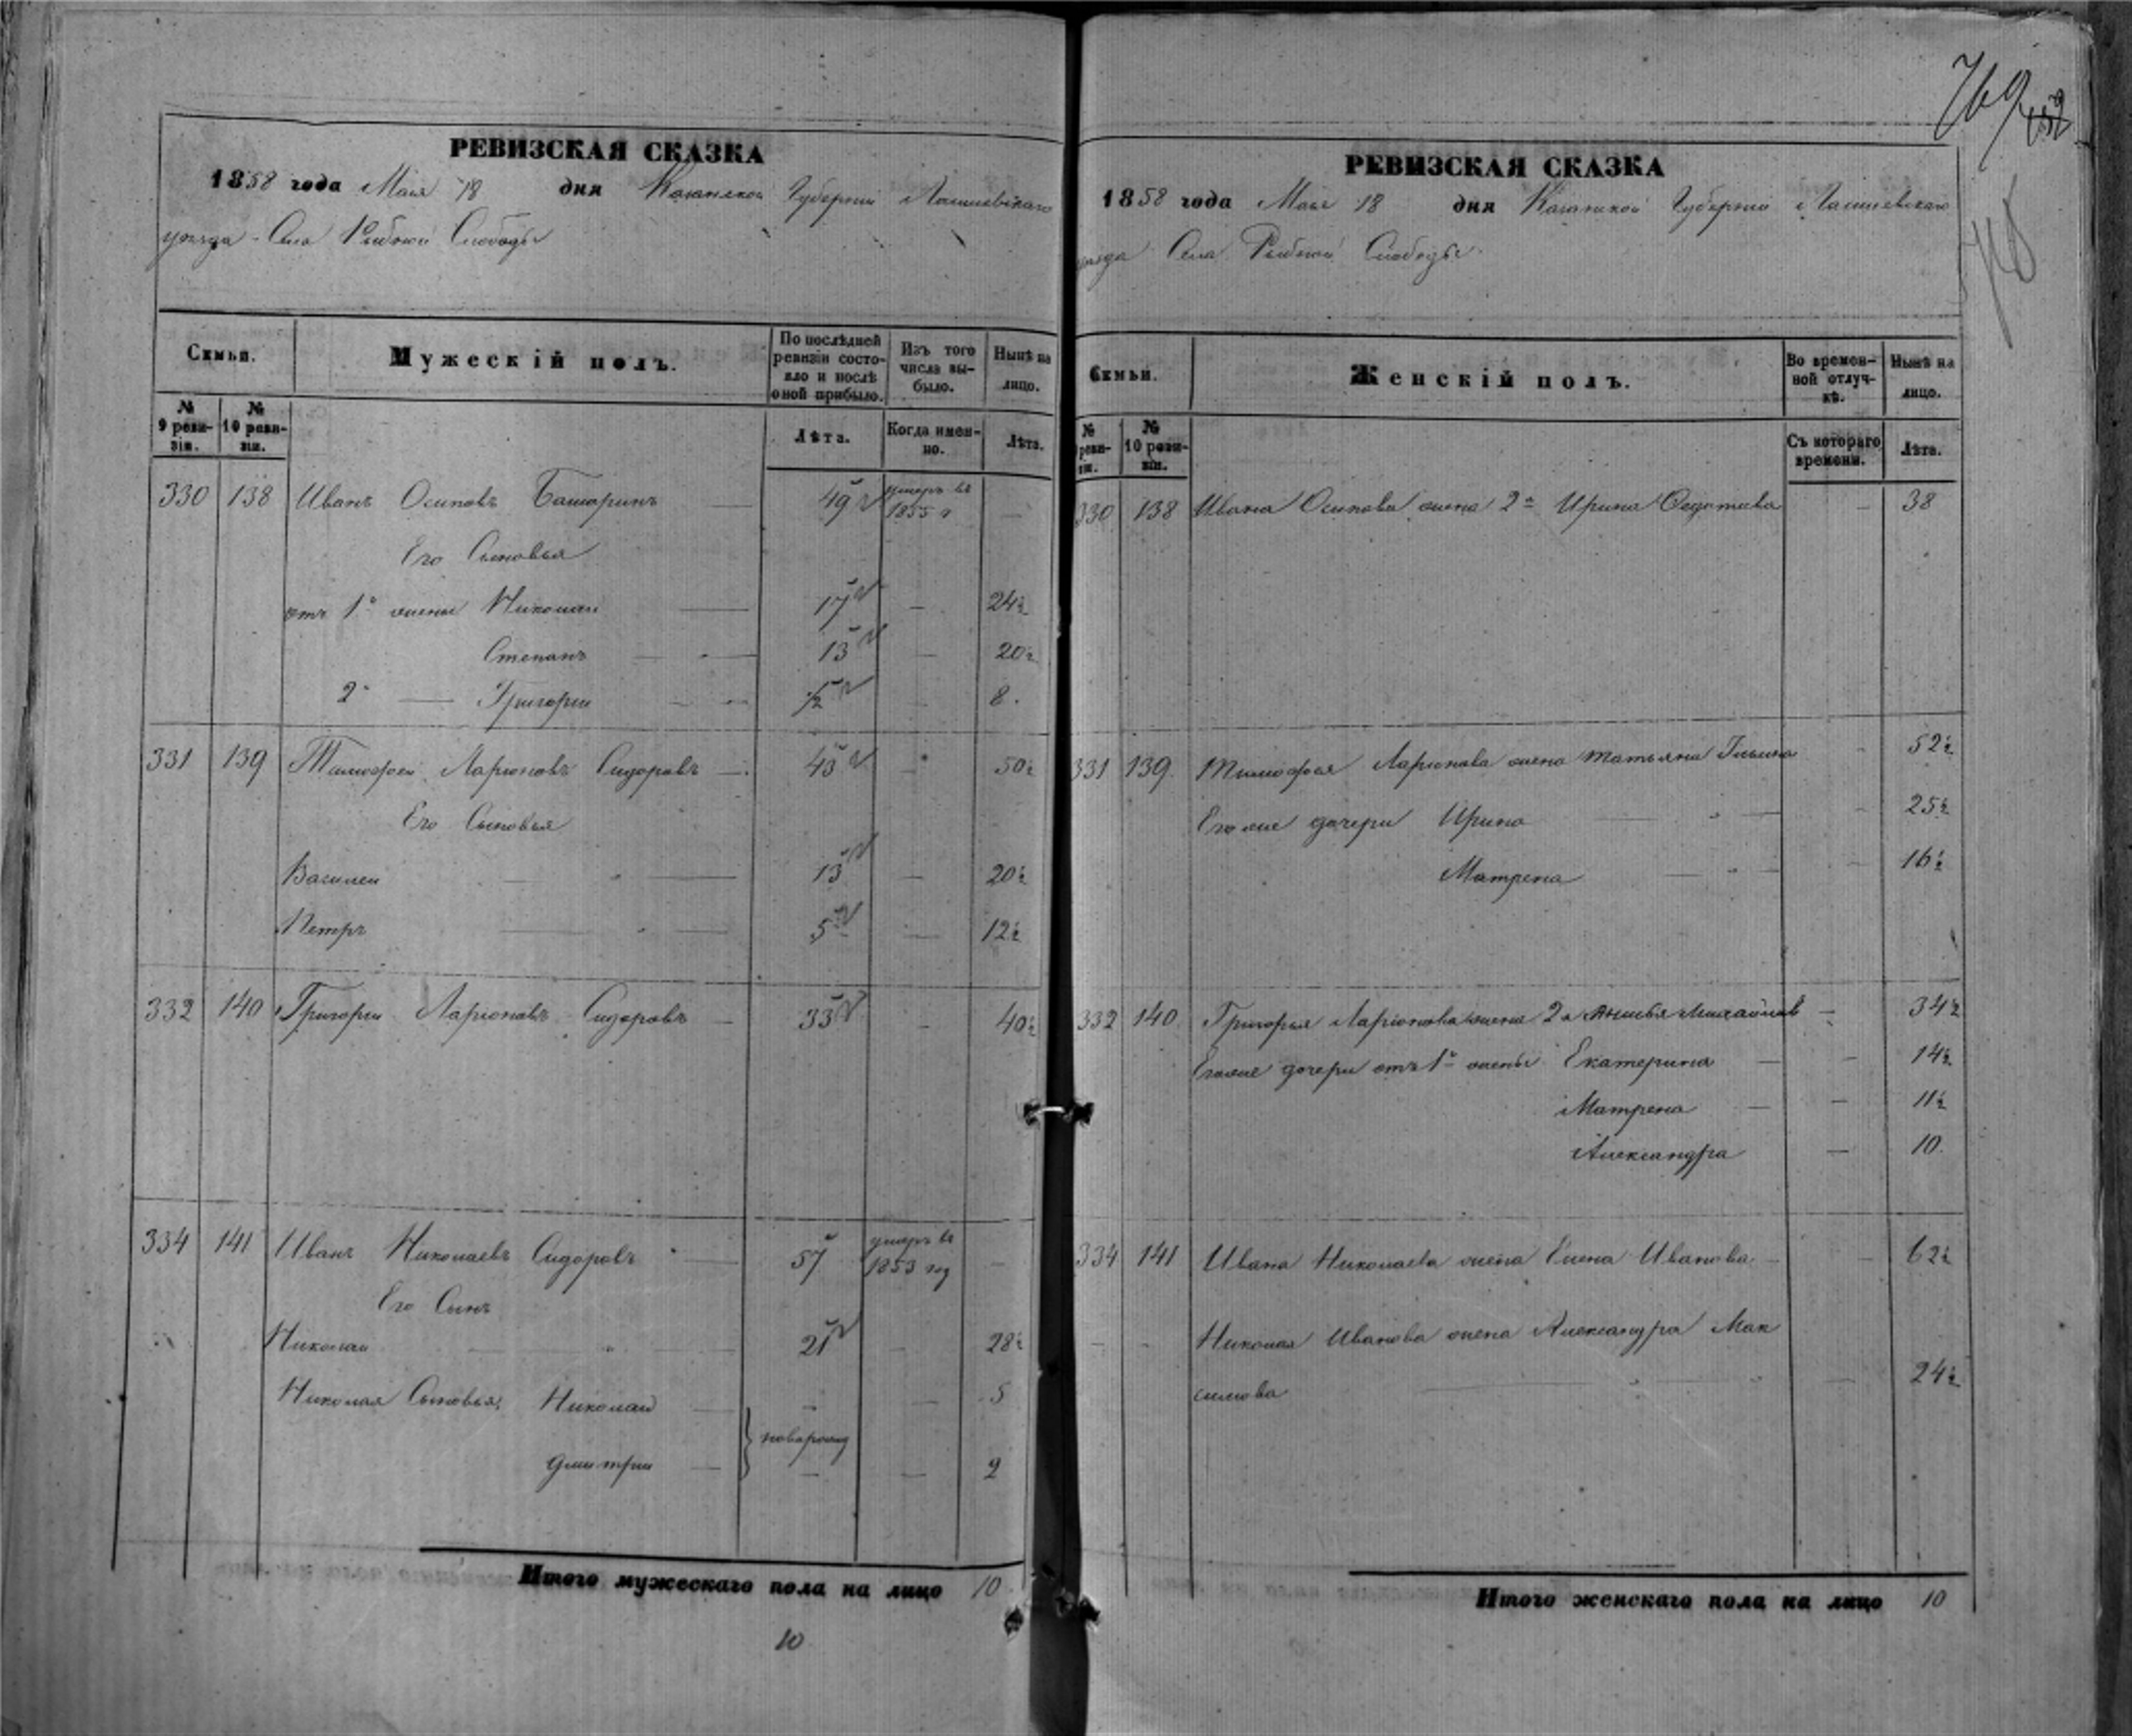 769
РЕВИЗСКАЯ СКАЗКА
1858 года Маія 18 дня Казанской Губерніи Лаишевскаго
уѣзда Села Рыбной Слободы
Семьи.
Мужескій полъ.
По послѣдней ревизіи состояло и послѣ оной прибыло.
Изъ того числа выбыло.
Нынѣ на лицо.
№ 9 ревизіи.
№ 10 ревизіи.
Лѣта.
Когда именно.
Лѣта.
330 138 Иванъ Осиповъ Башаринъ — 49 умеръ въ 1855 г —
Его Сыновья
отъ 1й жены Николай — 17 — 24½
Степанъ — 13 — 20½
2й — Григорій — ½ — 8
331 139 Тимофей Ларіоновъ Сидоровъ — 43 — 50½
Его Сыновья
Василей — 13 — 20½
Петръ — 5 — 12½
332 140 Григорій Ларіоновъ Сидоровъ — 33 — 40½
334 141 Иванъ Николаевъ Сидоровъ — 57 умеръ въ 1853 год —
Его Сынъ
Николай — 21 — 28½
Николая Сыновья: Николай — — — 5
новорожд
Дмитрій — — — 2
Итого мужескаго пола на лицо 10
10
РЕВИЗСКАЯ СКАЗКА
1858 года Маія 18 дня Казанской Губерніи Лаишевскаго
уѣзда Села Рыбной Слободы
Семьи.
Женскій полъ.
Во временной отлучкѣ.
Нынѣ на лицо.
№ 9 ревизіи.
№ 10 ревизіи.
Съ котораго времени.
Лѣта.
330 138 Ивана Осипова жена 2я Ирина Федотова — 38
331 139 Тимофея Ларіонова жена Татьяна Ильина — 52½
Его же дочери Ирина — 25½
Матрена — 16½
332 140 Григорья Ларіонова жена 2я Михайлов — 34½
Его же дочери отъ 1й жены Екатерина — 14½
Матрена — 11½
Александра — 10
334 141 Ивана Николаева жена Елена Иванова — 62½
Николая Иванова жена Александра Мак
симова — 24½
Итого женскаго пола на лицо 10